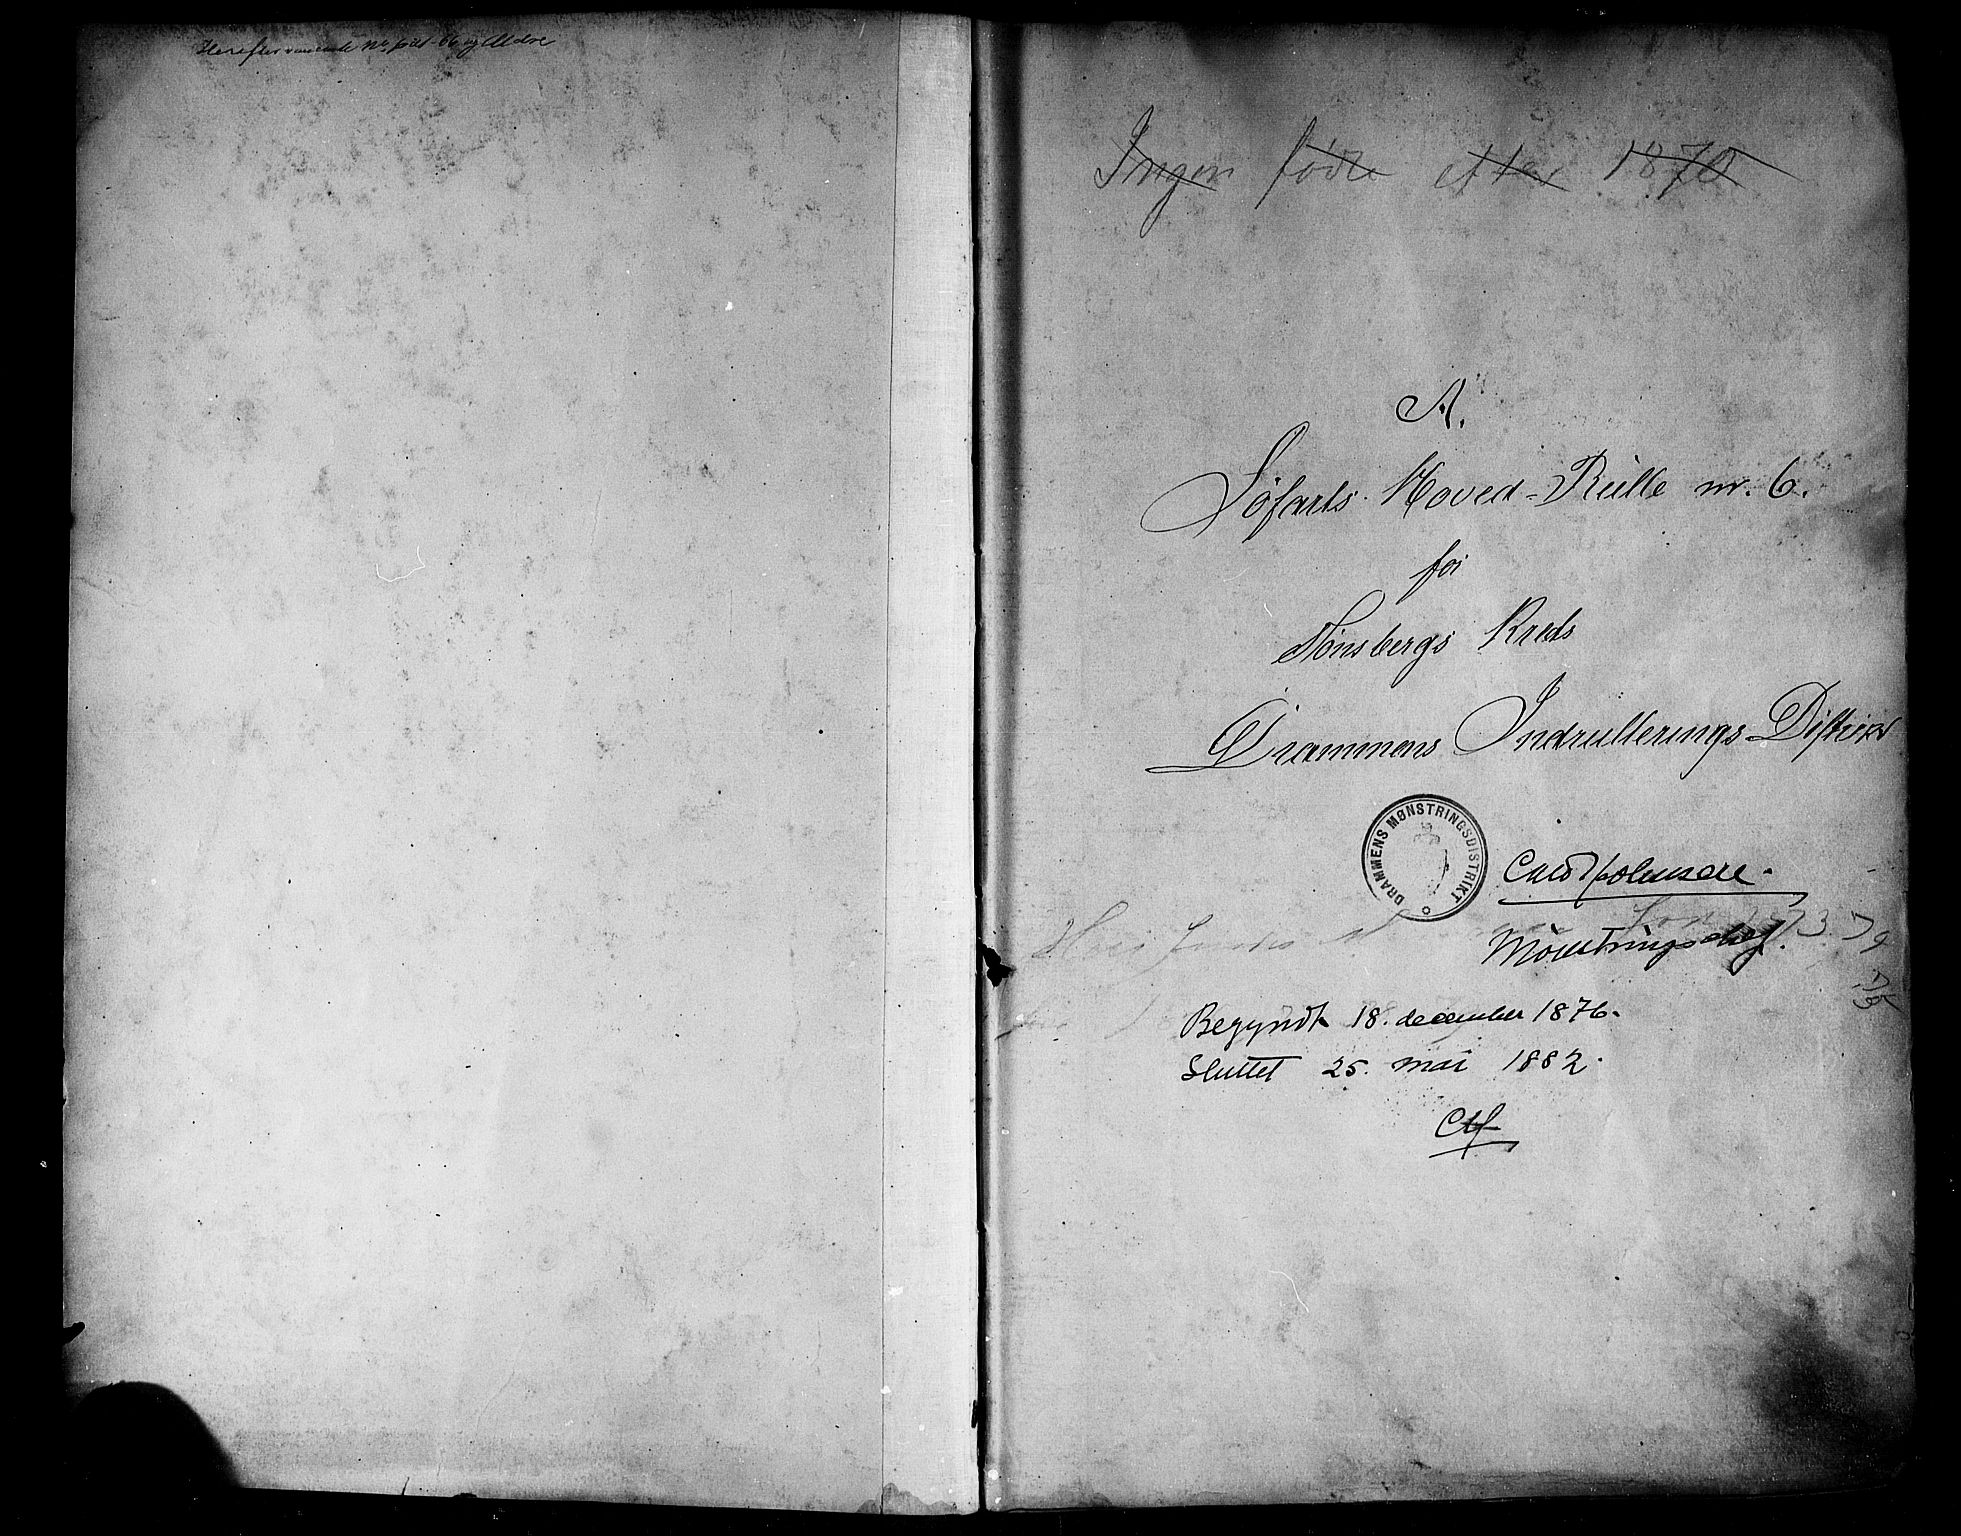 og Ældre
Ingen fødte efter 1870
A.
Søfarts-Hoved-Rulle nr. 6.
for
Tønsbergs Kreds
Drammens Indrullerings-Distrikt
DRAMMENS MØNSTRINGSDISTRIKT
Mønstringschef.
Begyndt 18. december 1876.
Sluttet 25. mai 1882.
CH